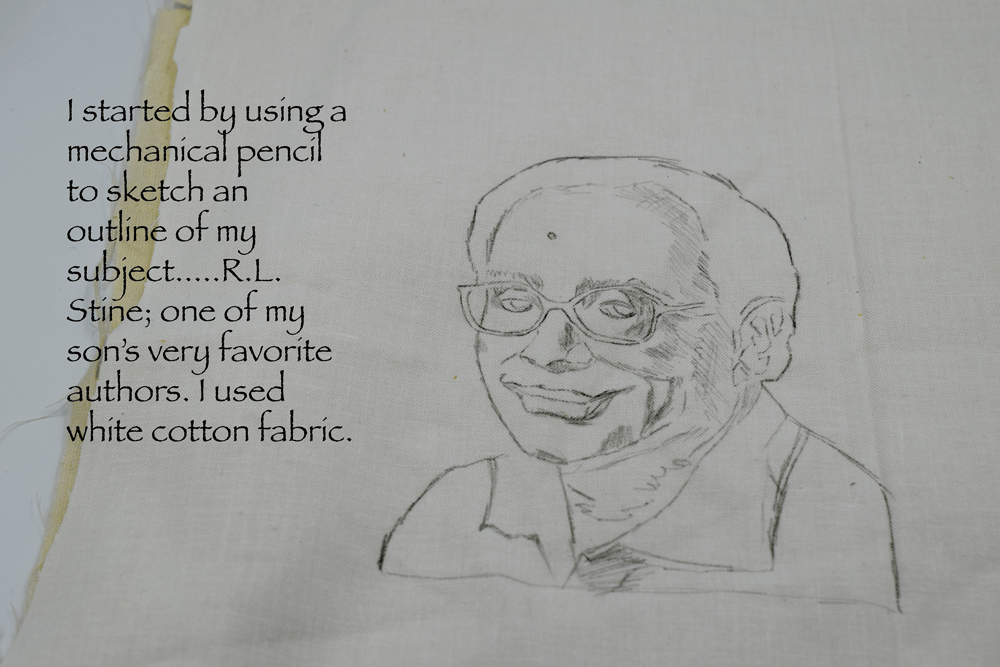 I started by using a
mechanical pencil
to sketch an
outline of my
subject.....R.L.
Stine; one of my
son's very favorite
authors. I used
white cotton fabric.